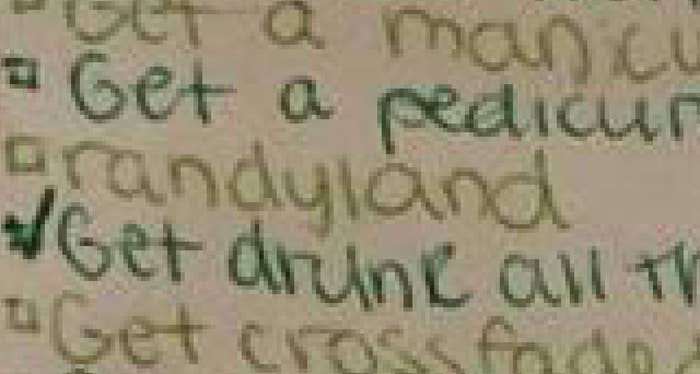 Get a manicu
Get a pedicur
randyland
Get drunk all th
Get crossfaded